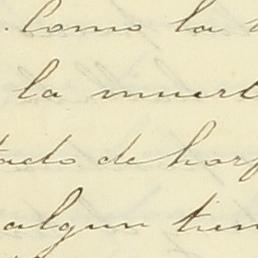 . Como la
la muert
tado de hosp
algun tiem